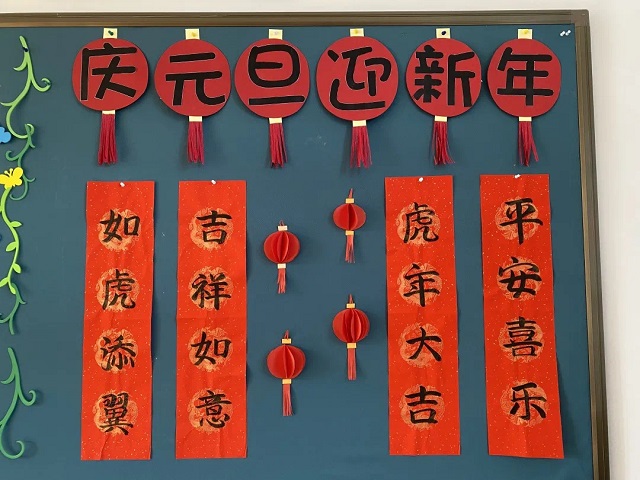 庆元旦迎新年
如虎添翼
吉祥如意
虎年大吉
平安喜乐